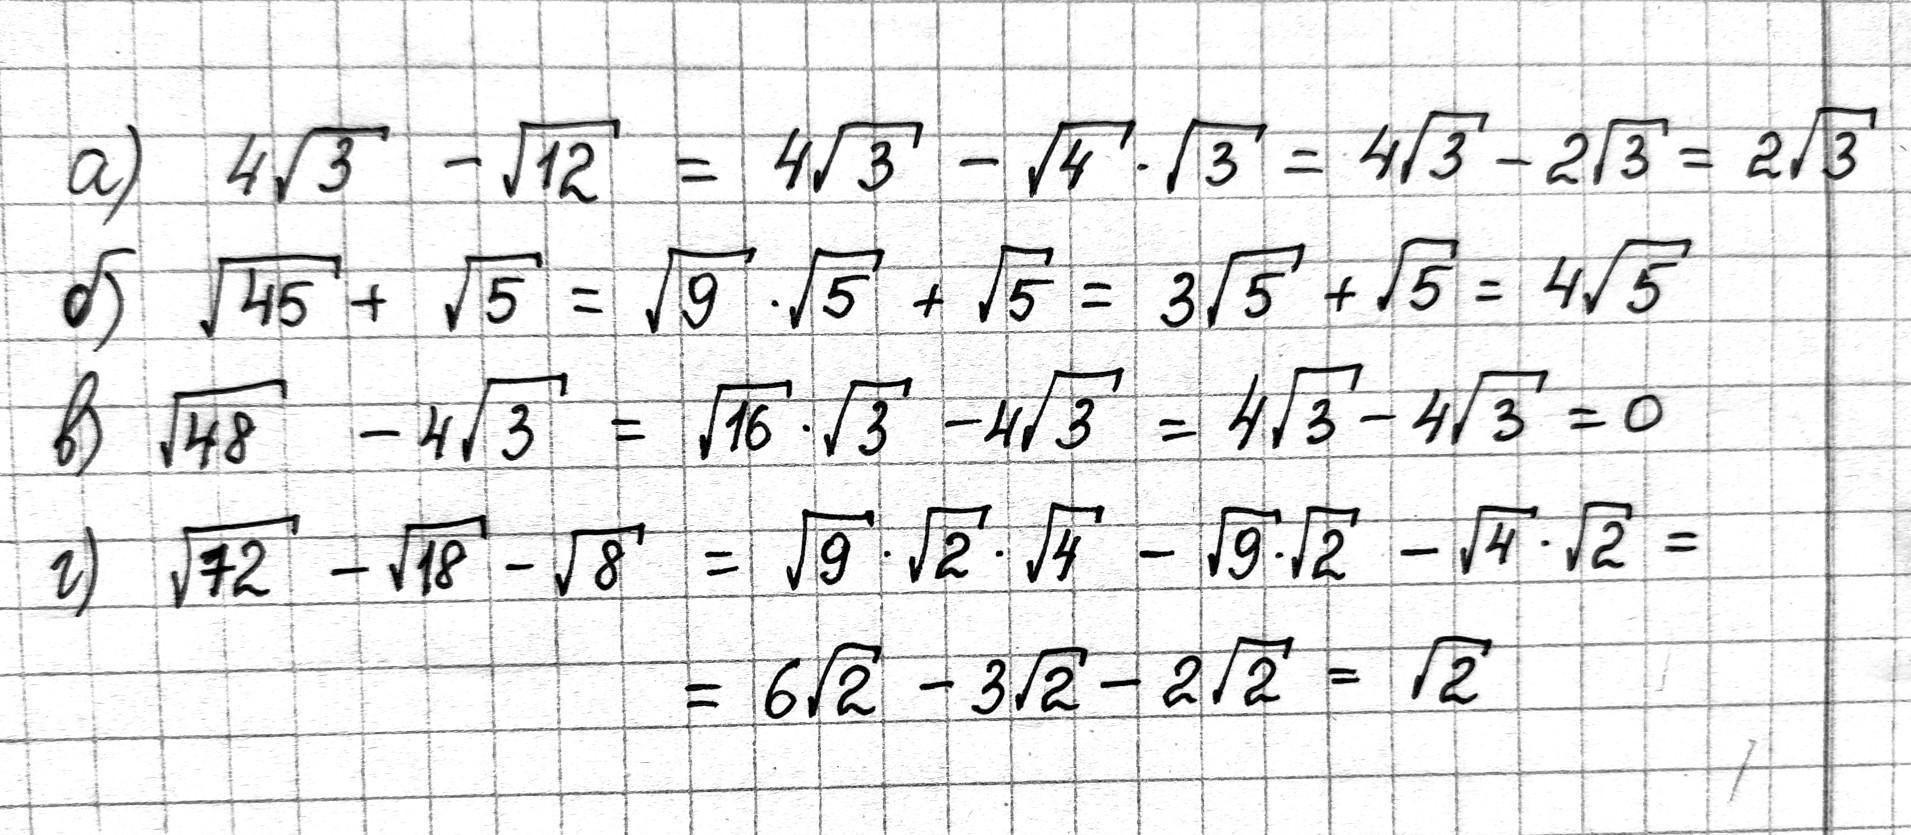 а) 4√3 - √12 = 4√3 - √4 · √3 = 4√3 - 2√3 = 2√3
б) √45 + √5 = √9 · √5 + √5 = 3√5 + √5 = 4√5
в) √48 - 4√3 = √16 · √3 - 4√3 = 4√3 - 4√3 = 0
г) √72 - √18 - √8 = √9 · √2 · √4 - √9 · √2 - √4 · √2 =
= 6√2 - 3√2 - 2√2 = √2